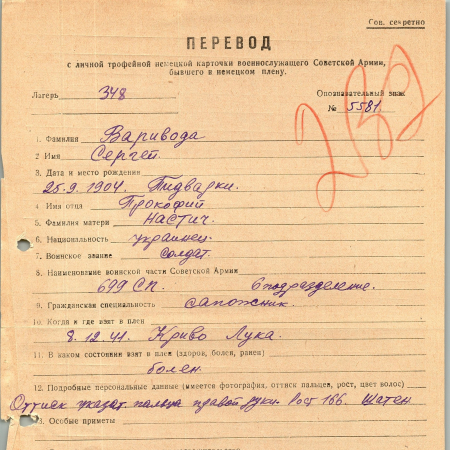 Сов. секретно
ПЕРЕВОД
с личной трофейной немецкой карточки военнослужащего Советской Армии,
бывшего в немецком плену.
Лагерь 348 Опознавательный знак
№ 5581
232
1. Фамилия Варивода
2 Имя Сергей.
3. Дата и место рождения
25.9.1904. Пидварки.
4. Имя отца Прокофий
5. Фамилия матери Настич.
6. Национальность украинец.
7. Воинское звание солдат.
8. Наименование воинской части Советской Армии
699 СП. 6 подразделение.
9. Гражданская специальность сапожник.
10. Когда и где взят в плен
8.12.41. Криво Лука.
11. В каком состоянии взят в плен (здоров, болен, ранен)
болен.
12. Подробные персональные данные (имеется фотография, оттиск пальцев, рост, цвет волос)
Оттиск указат. пальца правой руки. Рост 166. Шатен
13. Особые приметы